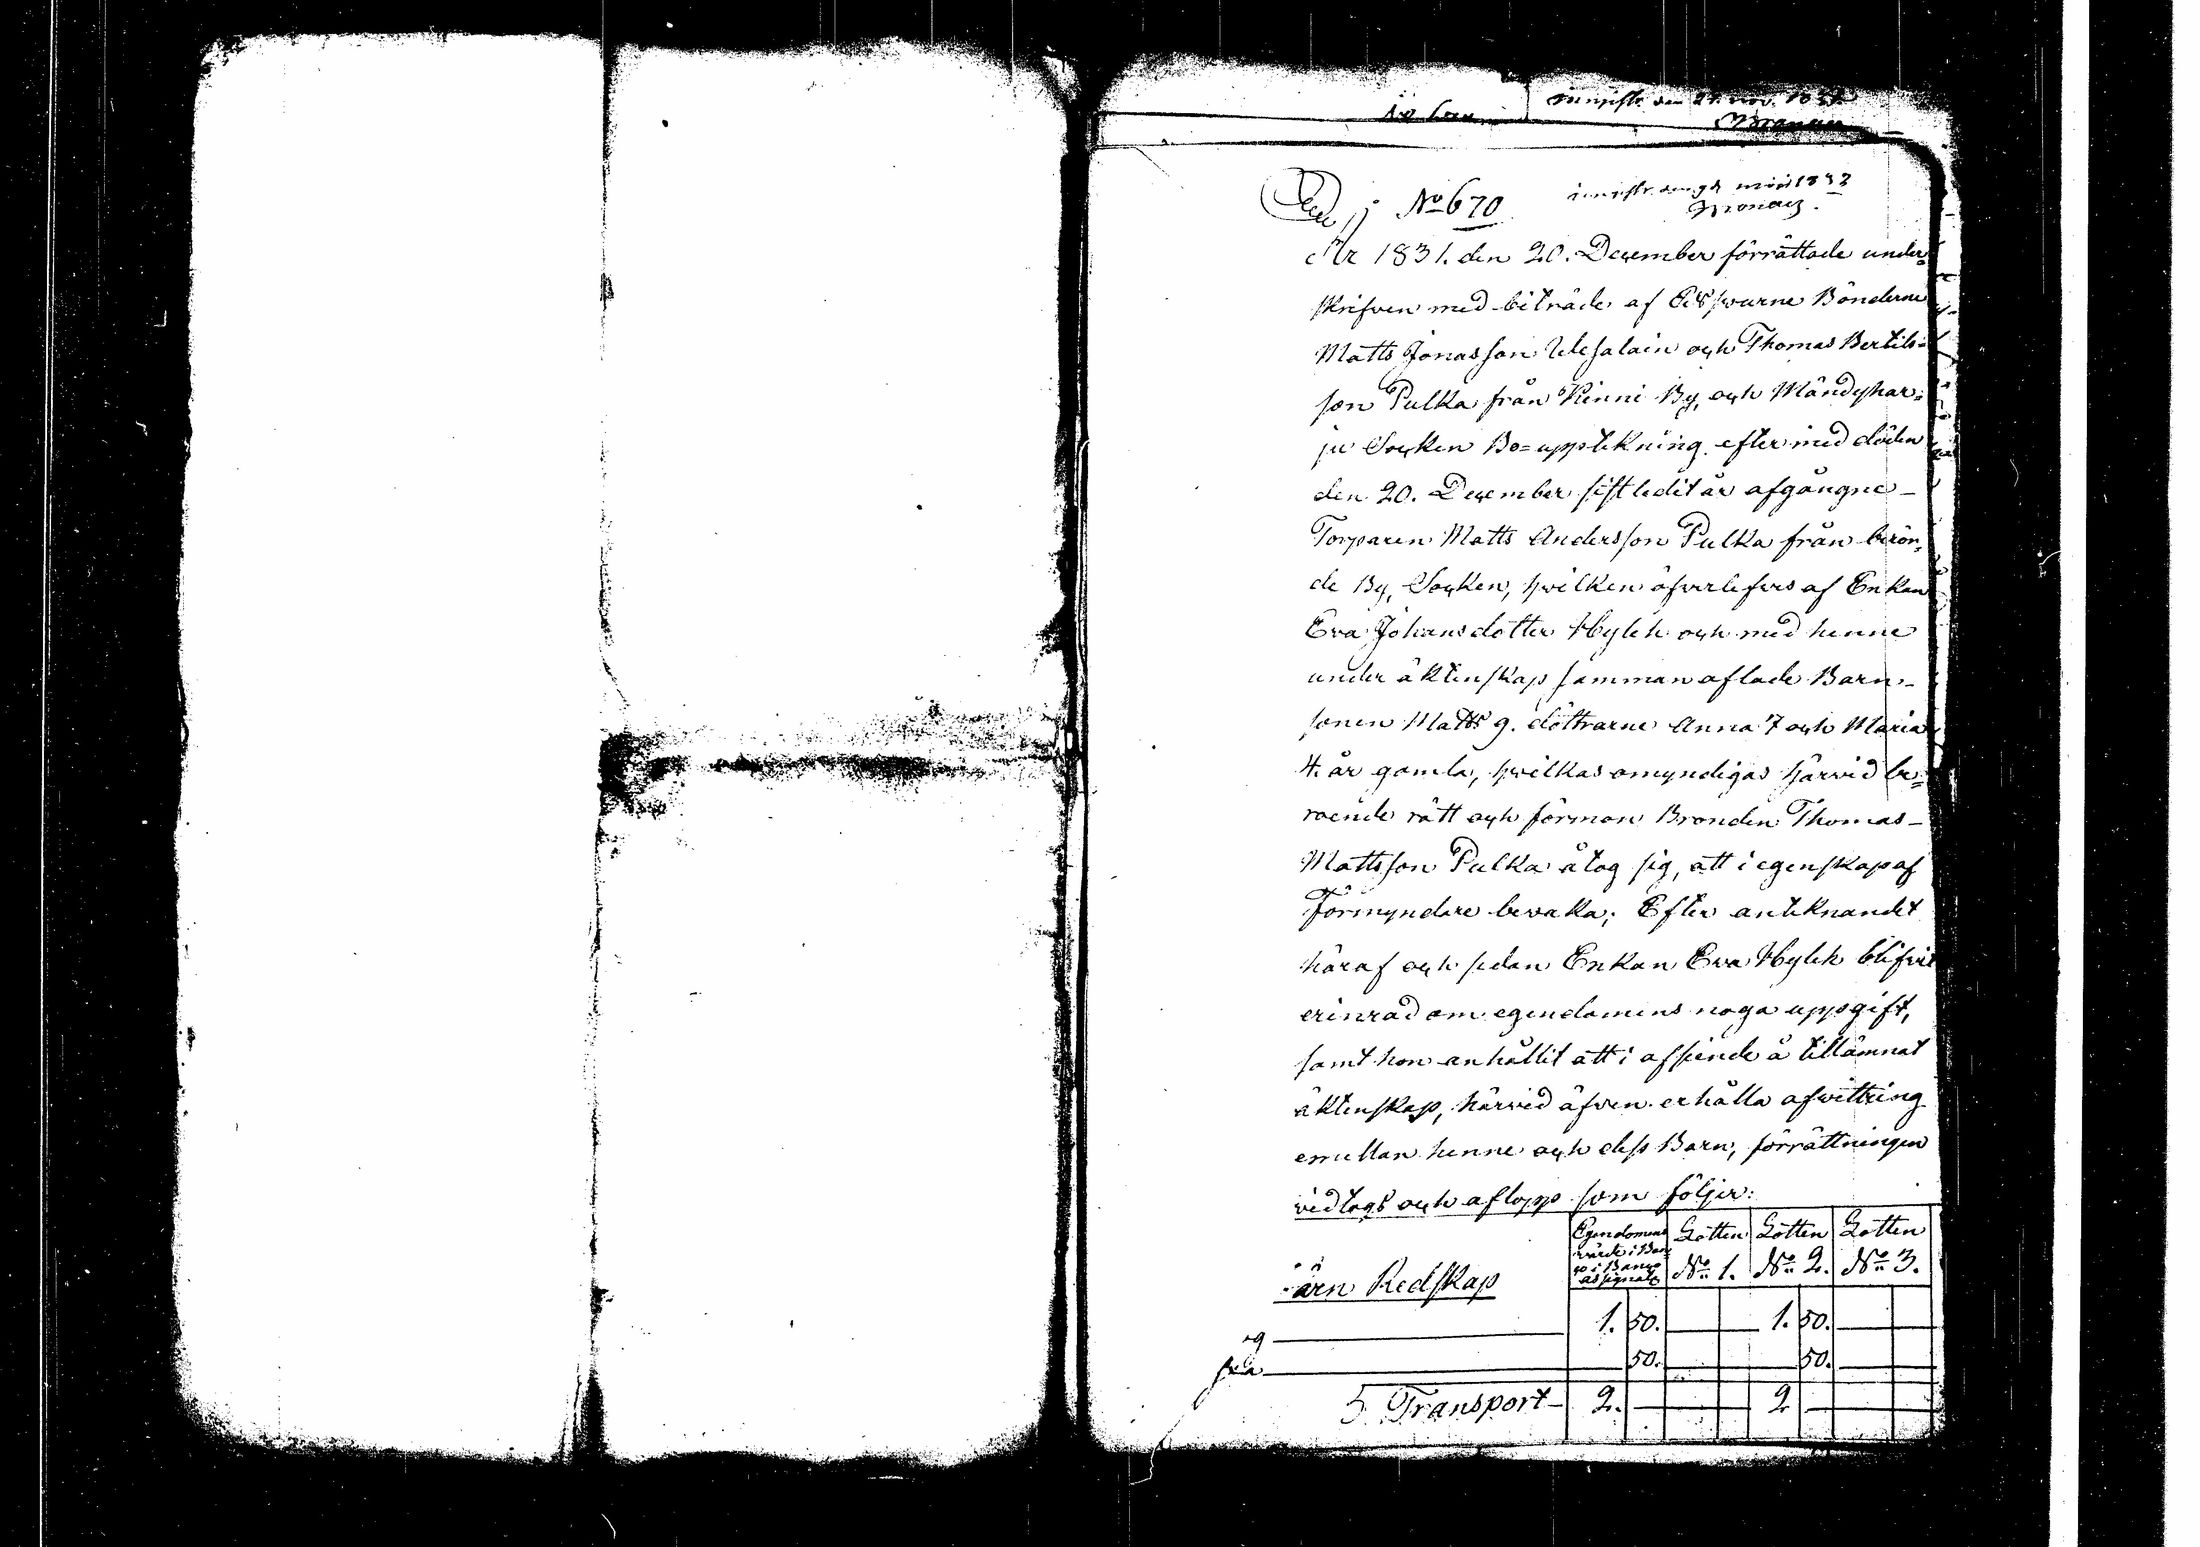 innestr. den 21. nov. 1831.
No 670
innestr. den 9 1832
År 1831. den 20. December förrättade under=
skrifven med biträde af Edsvurne Bönderne
Matts Jonasson Uksalain och Thomas Bertils=
son Pulka från Kinni By, och Mändyhar=
ju Socken Bo=uppteckning efter med döden
den 20. December sistledit år afgångne
Torparen Matts Andersson Pulka från berör=
de By, Socken, hvilken öfverlefves af Enkan
Eva Johansdotter Hylch och med henne
under äktenskap sammanaflade Barn
sonen Matts 9. döttrarne Anna 7 och Maria
4. år gamla, hvilkas omyndigas härvid be=
roende rätt och förmon Bronden Thomas
Mattsson Pulka åtog sig, att i egenskap af
Förmyndare bevaka; Efter antecknandet
häraf och sedan Enkan Eva Hylch blifvit
erinrad om egendomens noga uppgift,
samt hon anhållit att i afseende å tillämnat
äktenskap, härvid äfven erhålla afvittring
emellan henne och dess Barn, förrättningen
vidtogs och aflopp som följer:
Egendomens värde i Banco assignater Lotten No 1. Lotten No 2. Lotten No 3.
ärn Redskap
1. 50. 1. 50.
50. 50.
Transport 2. 2